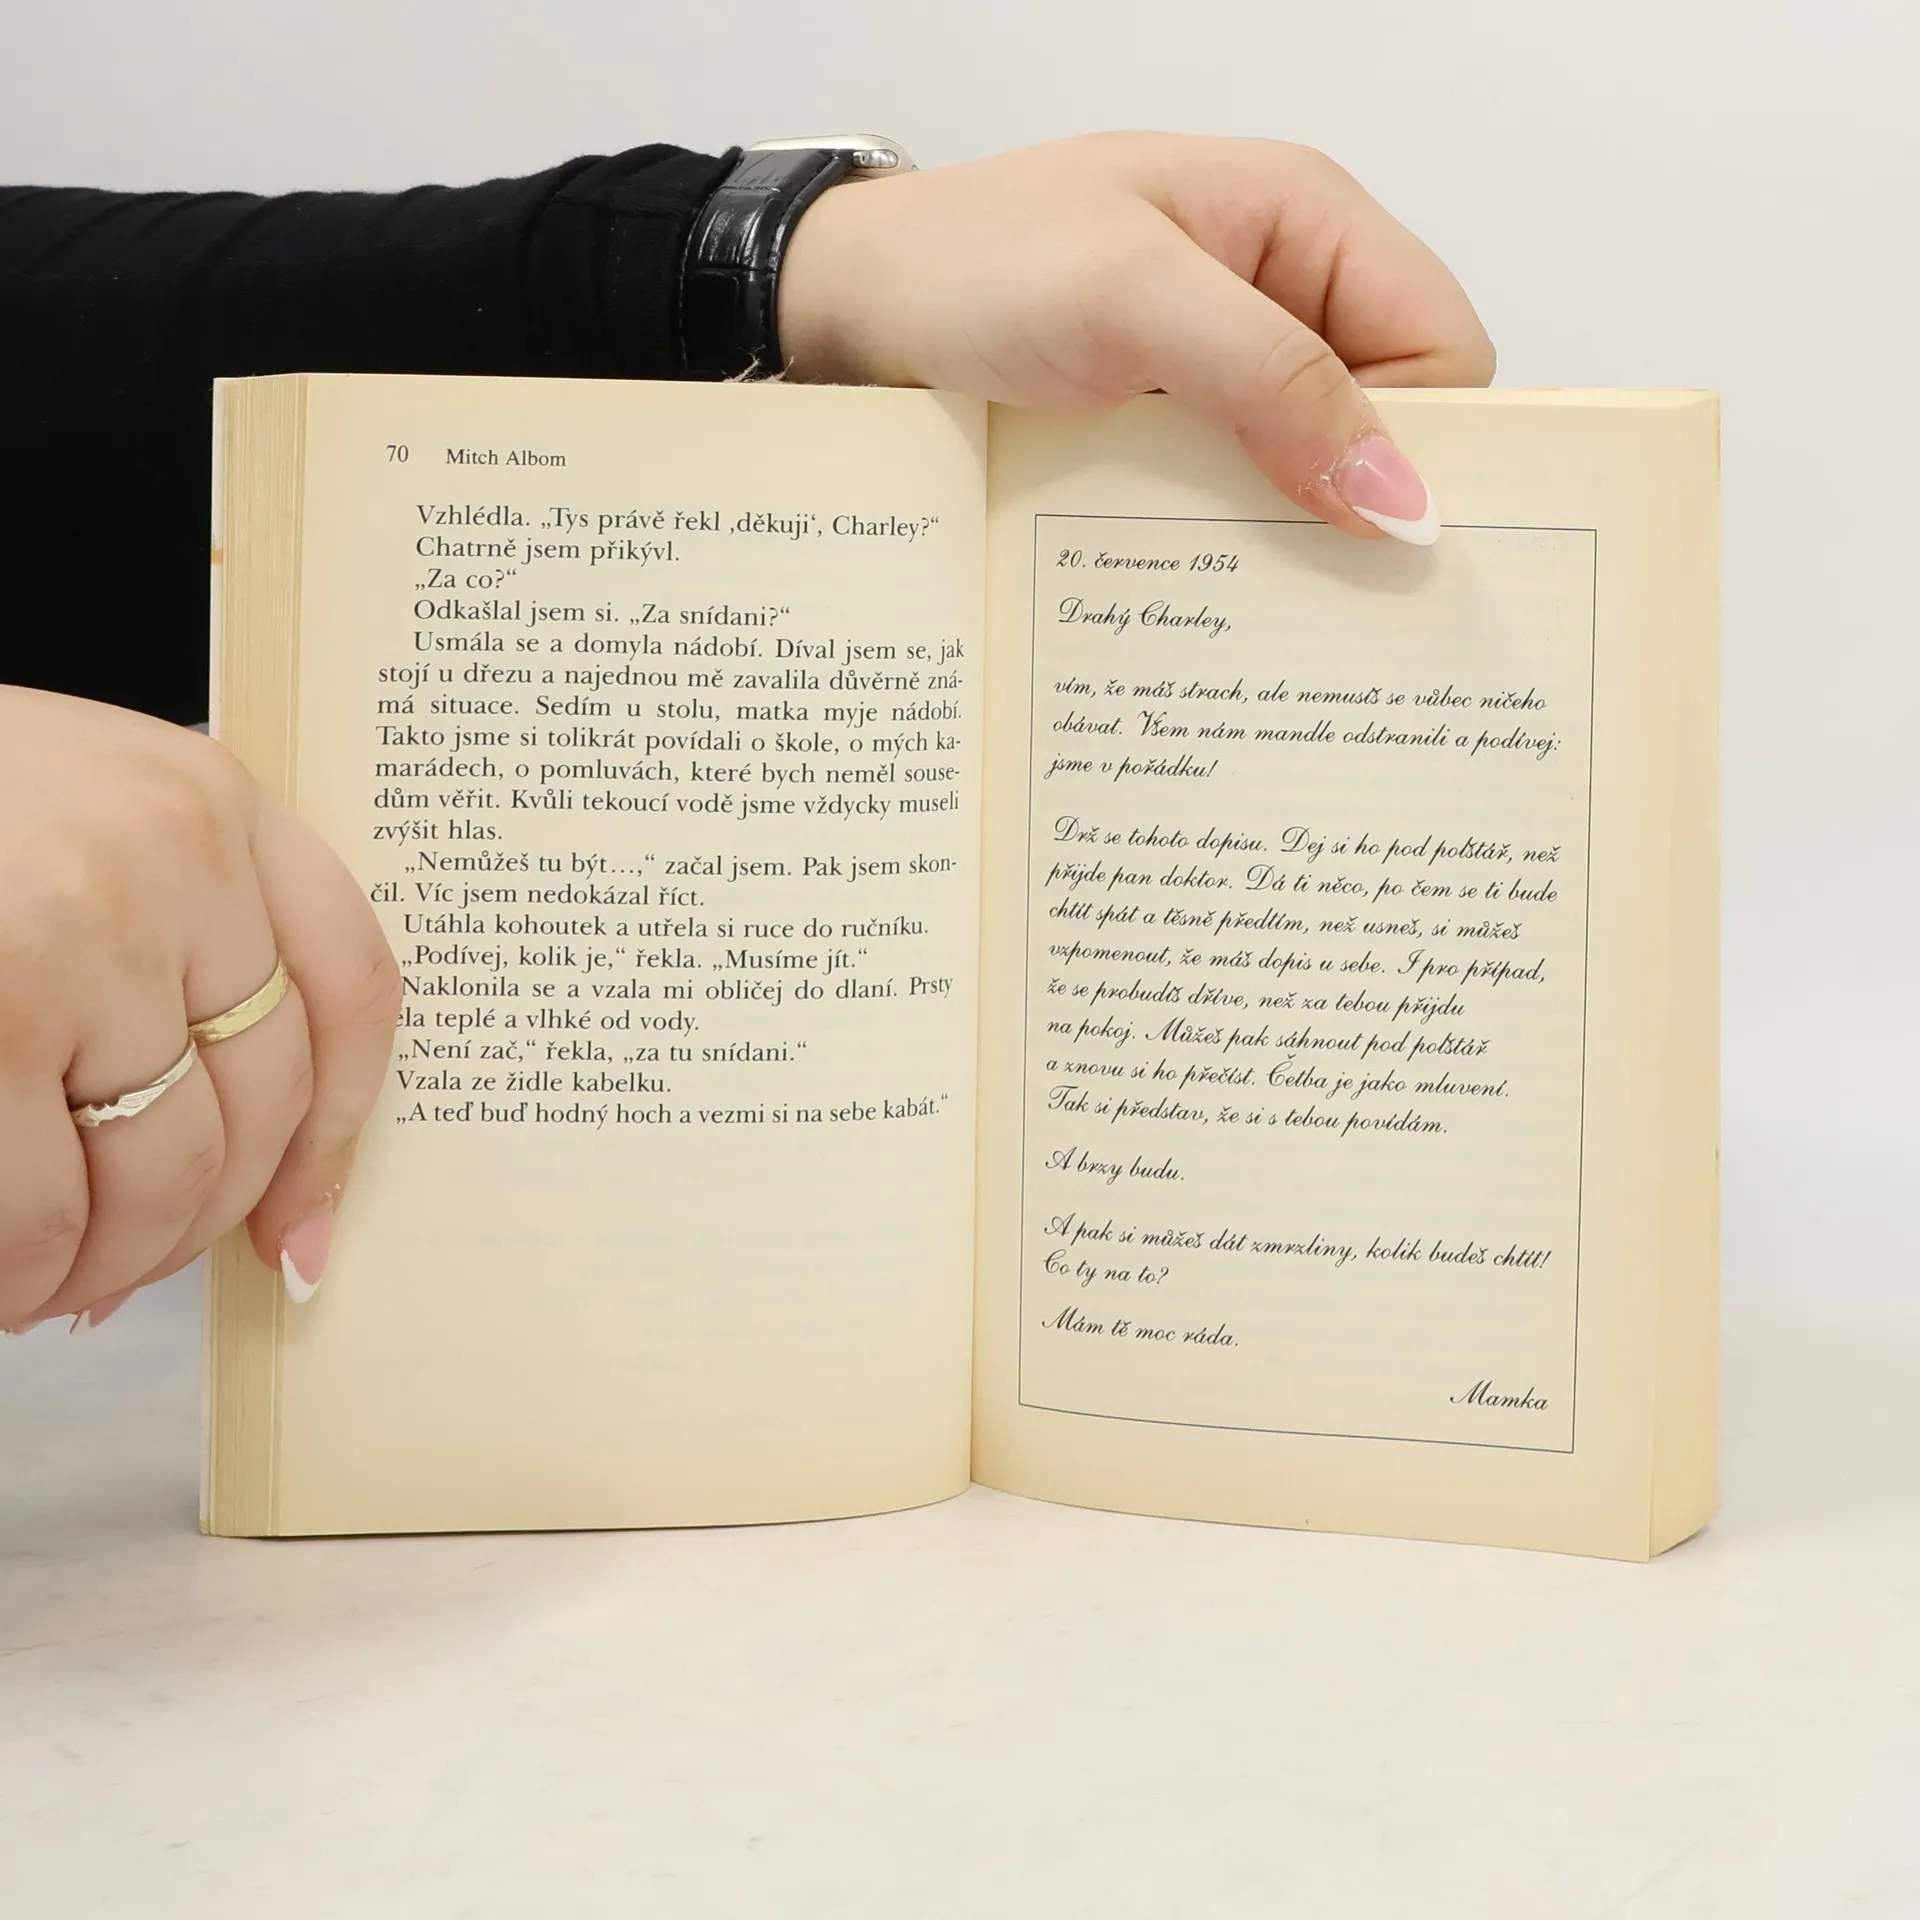 70 Mitch Albom
Vzhlédla. „Tys právě řekl ‚děkuji‘, Charley?“
Chatrně jsem přikývl.
„Za co?“
Odkašlal jsem si. „Za snídani?“
Usmála se a domyla nádobí. Díval jsem se, jak
stojí u dřezu a najednou mě zavalila důvěrně zná-
má situace. Sedím u stolu, matka myje nádobí.
Takto jsme si tolikrát povídali o škole, o mých ka-
marádech, o pomluvách, které bych neměl souse-
dům věřit. Kvůli tekoucí vodě jsme vždycky museli
zvýšit hlas.
„Nemůžeš tu být…,“ začal jsem. Pak jsem skon-
čil. Víc jsem nedokázal říct.
Utáhla kohoutek a utřela si ruce do ručníku.
„Podívej, kolik je,“ řekla. „Musíme jít.“
Naklonila se a vzala mi obličej do dlaní. Prsty
ěla teplé a vlhké od vody.
„Není zač,“ řekla, „za tu snídani.“
Vzala ze židle kabelku.
„A teď buď hodný hoch a vezmi si na sebe kabát.“
20. července 1954
Drahý Charley,
vím, že máš strach, ale nemusíš se vůbec ničeho
obávat. Všem nám mandle odstranili a podívej:
jsme v pořádku!
Drž se tohoto dopisu. Dej si ho pod polštář, než
přijde pan doktor. Dá ti něco, po čem se ti bude
chtít spát a těsně předtím, než usneš, si můžeš
vzpomenout, že máš dopis u sebe. I pro případ,
že se probudíš dříve, než za tebou přijdu
na pokoj. Můžeš pak sáhnout pod polštář
a znovu si ho přečíst. Četba je jako mluvení.
Tak si představ, že si s tebou povídám.
A brzy budu.
A pak si můžeš dát zmrzliny, kolik budeš chtít!
Co ty na to?
Mám tě moc ráda.
Mamka